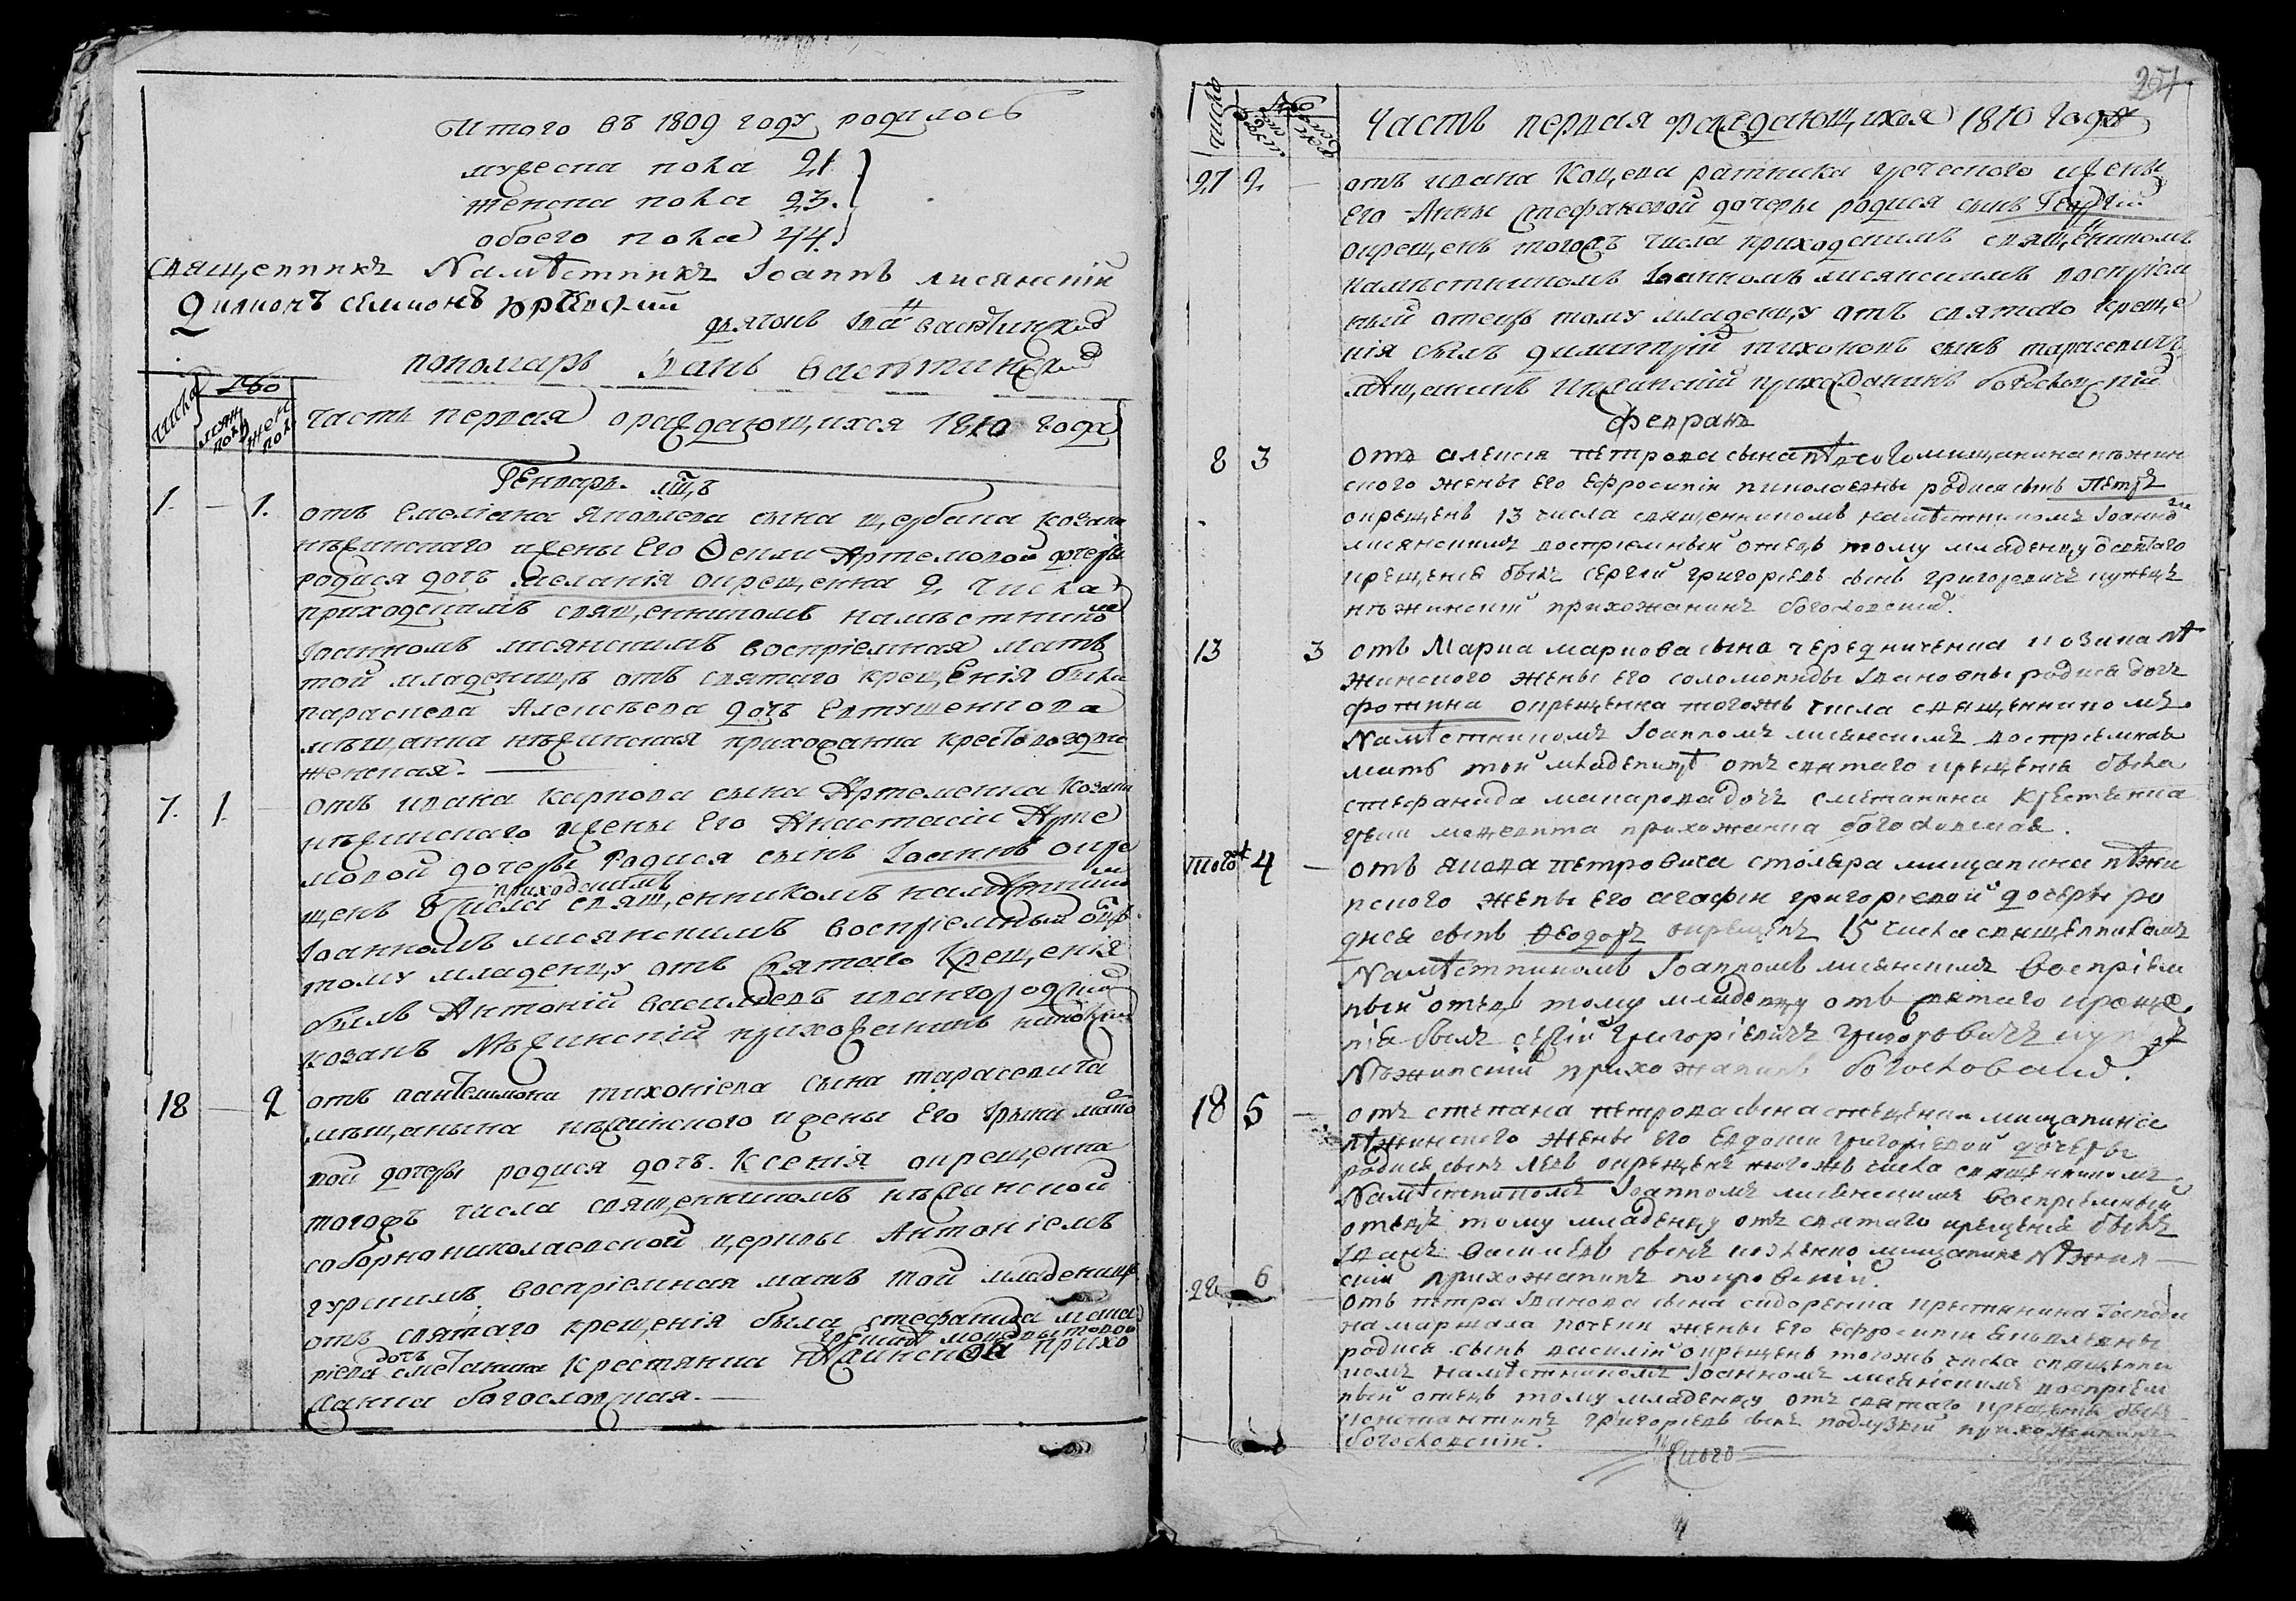 Итого въ 1809 году родилось
мужеска пола 21
женска пола 23.
обоего пола 44.
Священникъ Намѣстникъ Іоаннъ лисянскій
дияконъ симионъ
дяконъ
пономарь Іванъ
числа
мужъ пола
жен пола
часть первая о раждающихся 1810 года
Генварь мцъ
1. — 1. отъ Емелиана Яковлева сына щербака козака
нѣжинскаго жены Его Ѳеклы Артемовой дочеры
родися дочь мелания окрещенна 2 числа
приходскимъ священникомъ намѣстником
Іоанномъ лисянскимъ воспріемная мать
той младеницѣ отъ святаго крещенія была
параскева Алексѣева дочь Евтушенкова
мѣщанка нѣжинская прихожанка крестовоздви
женская.
7. 1. — отъ ивана карпова сына Артеменка козака
нѣжинскаго жены Его Анастасіи Арте
мовой дочеры Родися сынъ Іоаннъ окре
приходскимъ
щенъ 8 числа священникомъ намѣстником
Іоанномъ лисянскимъ воспріемный отцъ
тому младенцу отъ святаго Крещенія
былъ Антоній василіевъ
козакъ Нѣжинскій прихожанинъ
18 — 2 отъ пантелимона тихоніева сына тарасевича
мѣщанына нѣжинского жены Его
вой дочеры родися дочь Ксенія окрещенна
тогожъ числа священникомъ нѣжинской
соборно николаевской церквы Антоніемъ
гурскимъ воспріемная мать той младеницѣ
отъ святаго крещенія была стефанида мака
дочь
ріева сметанина крестянка прихо
жанка богословская.—
251
число
Часть первая о раждающихся 1810 года
27 2 — отъ ивана Коцева ратника жены
Его Анны стефановой дочеры родися сынъ Георгій
окрещенъ тогожъ числа приходскимъ священникомъ
намѣстникомъ Іоанномъ лисянскимъ воспріем
ный отецъ тому младенцу отъ святаго креще
нія былъ димитрій тихоновъ сынъ тарасевичъ
мѣщанинъ нѣжинскій прихожанинъ богословскій
февраль
8 3 отъ алексія петрова сына мищанина нѣжин
ского жены Его Ефросиніи николаевны родися сынъ Петръ
окрещенъ 13 числа священникомъ намѣстникомъ Іоанно
лисянскимъ воспріемный отецъ тому младенцу о святаго
крещенія былъ сергій григоріевъ сынъ григоровичъ купецъ
нѣжинскій прихожанинъ богословский.
13 3 отъ Марка маркова сына чередниченка козака нѣ
жинского жены Его соломониды Івановны родися дочь
фотинна окрещенна тогожъ числа священникомъ
Намѣстникомъ Іоанномъ лисянскимъ воспріемная
мать той младеницѣ отъ святаго крещенія была
стефанида макарова дочь сметанина крестянка
прихожанка богословская.
тогожъ 4 — отъ якова петровича столяра мищанина нѣжи
нского жены Его агафіи григоріевой дочеры ро
дися сынъ Ѳеодоръ окрещенъ 15 числа священникомъ
Намѣстникомъ Іоанномъ лисянскимъ воспріем
ный отецъ тому младенцу отъ святаго креще
нія былъ сергій Григоріевичъ григоровичъ купецъ
Нѣжинскій прихожанинъ богословский.
18 5 — отъ степана петрова сына мищанина
нѣжинского жены Его Евдокии григоріевой дочеры
родися сынъ левъ окрещенъ тогожъ числа священникомъ
Намѣстникомъ Іоанномъ лисянскимъ воспріемный
отецъ тому младенцу отъ святаго крещенія былъ
Іванъ василіевъ сынъ мищанинъ Нѣжин—
скій прихожанинъ покровскій.
28 6 отъ петра Іванова сына сидоренка крестянина Господи
на маршала жены Его Ефросиніи
родися сынъ василій окрещенъ тогожъ числа священни
комъ намѣстникомъ Іоанномъ лисянскимъ воспріем
ный отецъ тому младенцу отъ святаго крещенія былъ
константинъ григоріевъ сынъ прихожанинъ
богословскій.